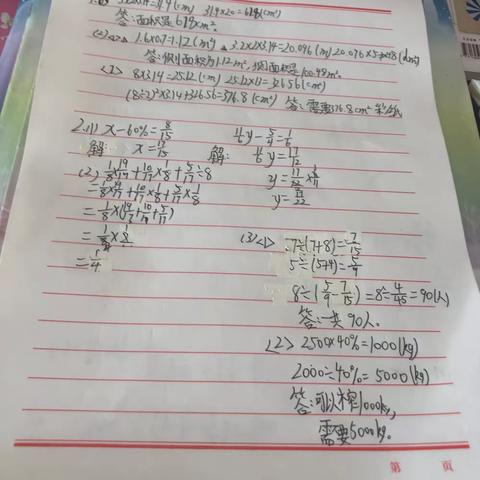 31.4×20=628(cm²)
答:面积是628cm².
(2) 1.6×0.7=1.12(m²) 3.2×2×3.14=20.096(m) 20.096×5
答:侧面积为1.12m²,
<1> 8×3.14=25.12(cm) 25.12×13=326.56(cm²)
(8÷2)²×3.14+326.56=376.8(cm²) 答:需要376.8cm²
2.(1) x-60%=8/15 11/6y-5/4=1/6
解: x=17/15 解: 11/6y=17/12
(2) 1/8×19/17+10/17×1/8+5/17÷8 y=17/12×
=1/8×19/17+10/17×1/8+5/17×1/8 y=17/22
=1/8×(19/17+10/17+5/17)
=1/8×
=1/4
(3)<1> 7÷(7+8)=7/15
5÷(5+4)=5/9
8÷(5/9-7/15)=8÷4/45=90(人)
答:一共90人.
<2> 2500×40%=1000(kg)
2000÷40%=5000(kg)
答:可以榨1000kg,
需要5000kg.
第 页